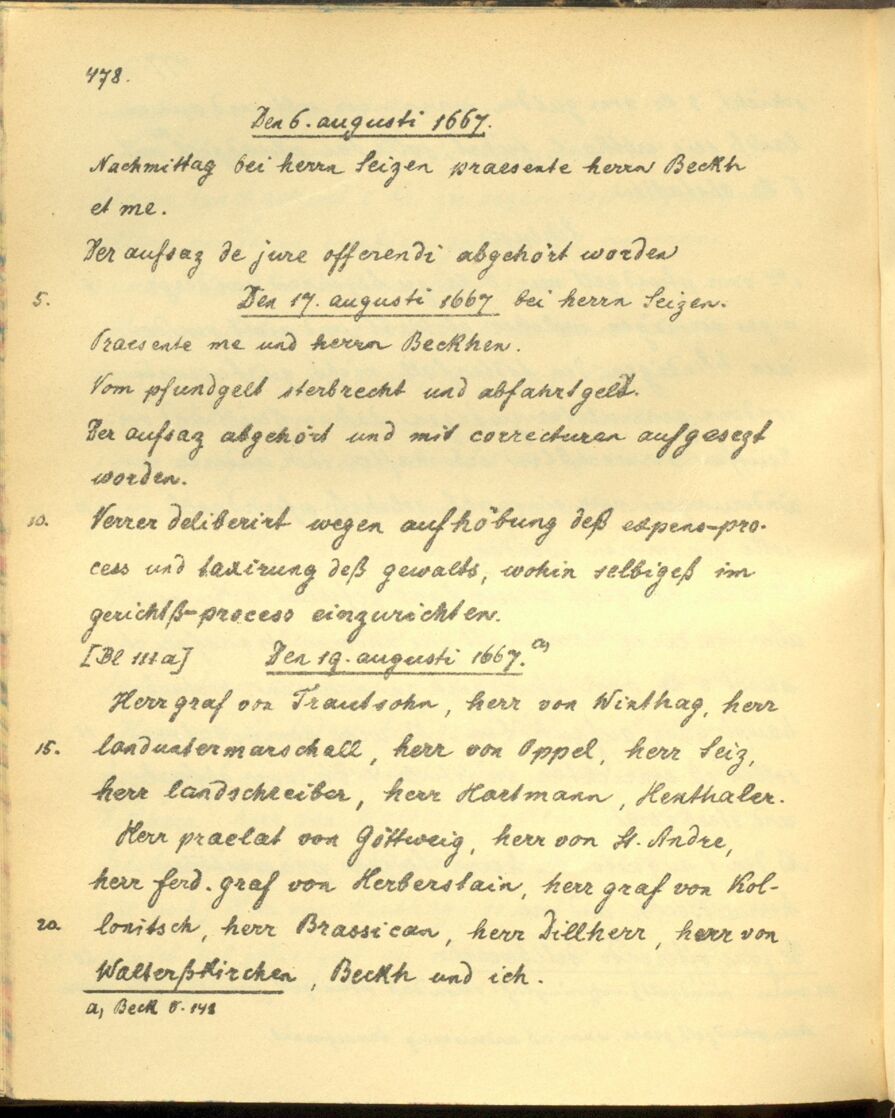 478.
Den 6. augusti 1667.
Nachmittag bei herrn Seizen praesente herrn Beckh
et me.
Der aufsaz de jure offerendi abgehört worden
5. Den 17. augusti 1667 bei herrn Seizen.
Praesente me und herrn Beckhen.
Vom pfundgelt sterbrecht und abfahrtgeld.
Der aufsaz abgehört und mit correcturen aufgesezt
worden.
10. Verrer deliberirt wegen aufhöbung deß expens-pro-
cess und taxirung deß gewalts, wohin selbigeß im
gerichtß-process einzurichten.
[Bl 111a] Den 19. augusti 1667. a)
Herr graf von Trautsohn, herr von Winthag, herr
15. landuntermarschall, herr von Oppel, herr Seiz,
herr landschreiber, herr Hartmann, Henthaler.
Herr praelat von Göttweig, herr von St. Andre,
herr ferd. graf von Herberstain, herr graf von Kol-
20. lonitsch, herr Brassican, herr Dillherr, herr von
Walterßkirchen, Beckh und ich.
a) Beck